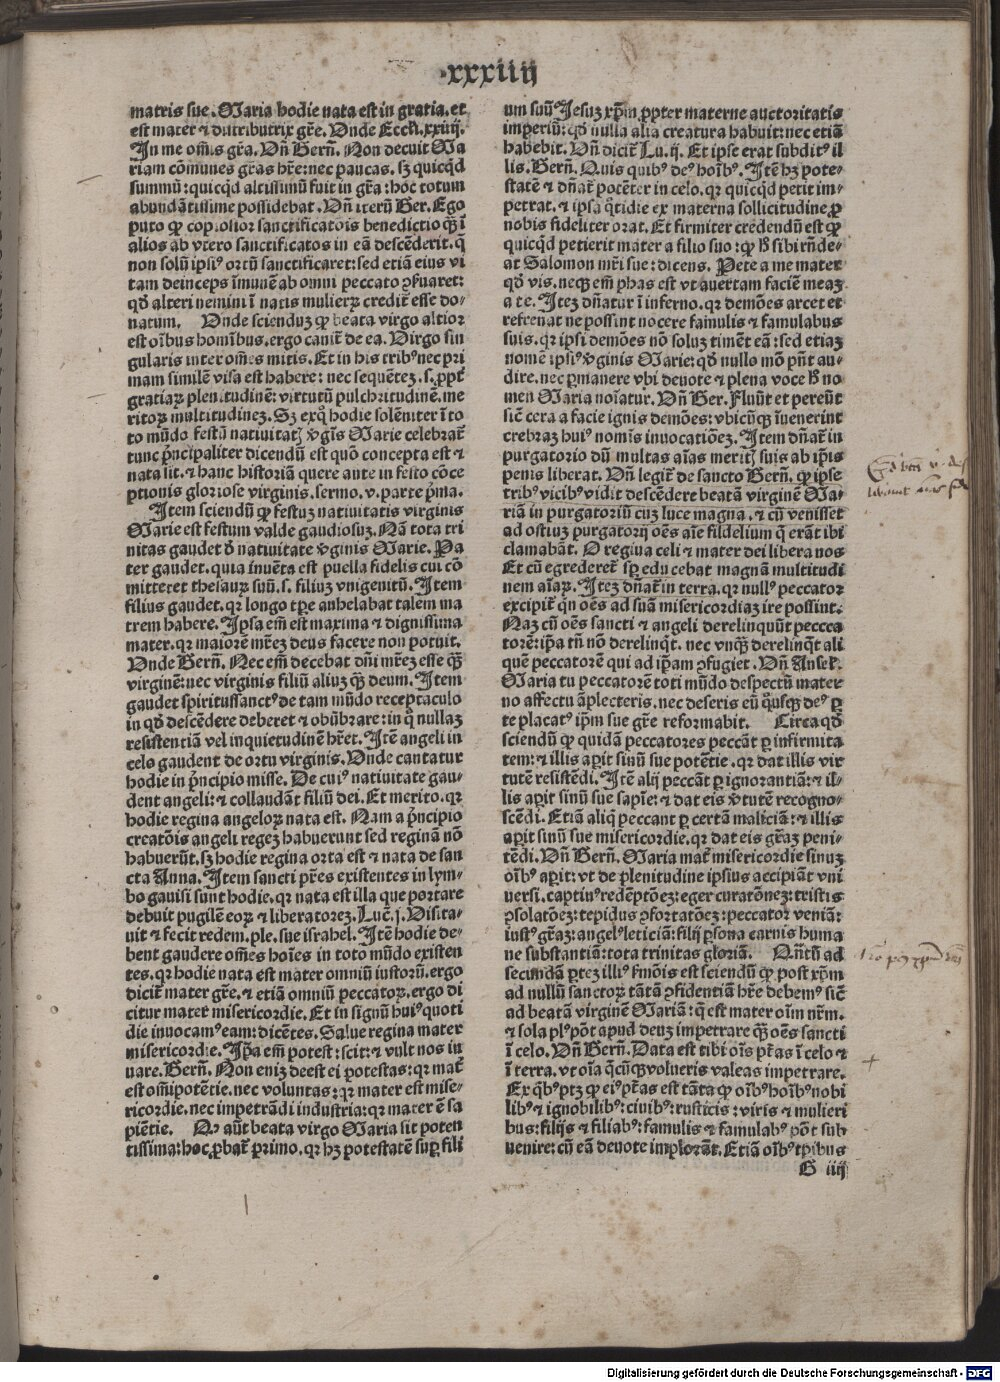 ·xxxiiij
matris sue. Maria hodie nata est in gratia. et
est mater ⁊ distributrix gr̄e. Vnde Eccli. xxiiij.
In me om̄is gr̄a. Vn̄ Bern̄. Non decuit Ma
riam cōmunes gr̄as hr̄e: nec paucas. sꝫ quicq̇d
summū: quicq̇d altissimū fuit in gr̄a: hoc totum
abundātissime possidebat. Vn̄ iterū Ber. Ego
puto ꝙ copiosior sanctificatōis benedictio q̄ꝫ ī
alios ab vtero sanctificatos in eā descēderit. q̄
non solū ipsiꝰ ortū sanctificaret: sed etiā eius vi
tam deinceps īmunē ab omni peccato p̄ẜuaret:
qd̄ alteri nemini ī natis mulieꝝ credit̄ esse do-
natum. Vnde scienduꝫ ꝙ beata virgo altior
est oībus homībus. ergo canit̄ de ea. Virgo sin
gularis inter om̄es mitis. Et in his tribꝰ nec pri
mam similē visa est habere: nec sequēteꝫ. s. ꝓpt̄
gratiaꝝ plenitudinē: virtutū pulchritudinē. me
ritoꝝ multitudineꝫ. Sꝫ exq̇ hodie solēniter ī to
to mūdo festū natiuitatꝭ ꝟgīs Marie celebrat̄
tunc p̄ncipaliter dicendū est quō concepta est ⁊
nata sit. ⁊ hanc historiā quere ante in festo cōce
ptionis gloriose virginis. sermo. v. parte p̄ma.
Item sciendū ꝙ festuꝫ natiuitatis virginis
Marie est festum valde gaudiosuꝫ. Nā tota tri
nitas gaudet ð natiuitate ꝟginis Marie. Pa
ter gaudet. quia inuēta est puella fidelis cui cō
mitteret thesauꝝ suū. s. filiuꝫ vnigenitū. Item
filius gaudet. qꝛ longo tp̄e anhelabat talem ma
trem habere. Ipsa em̄ est maxima ⁊ dignissima
mater. qꝛ maiorē mr̄eꝫ deus facere non potuit.
Vnde Bern̄. Nec em̄ decebat dn̄i mr̄eꝫ esse q̄ꝫ
virginē: nec virginis filiū aliuꝫ q̄ꝫ deum. Item
gaudet spiritussanctꝰ de tam mūdo receptaculo
in qd̄ descēdere deberet ⁊ obūbrare: in q̄ nullaꝫ
resistentiā vel inquietudinē hr̄et. Itē angeli in
celo gaudent de ortu virginis. Vnde cantatur
hodie in p̄ncipio misse. De cuiꝰ natiuitate gau-
dent angeli: ⁊ collaudāt filiū dei. Et merito. qꝛ
hodie regina angeloꝝ nata est. Nam a p̄ncipio
creatōis angeli regeꝫ habuerunt sed reginā nō
habuerūt. sꝫ hodie regina orta est ⁊ nata de san
cta Anna. Item sancti pr̄es existentes in lym-
bo gauisi sunt hodie. qꝛ nata est illa que portare
debuit pugilē eoꝝ ⁊ liberatoreꝫ. Luc̄. j. Visita-
uit ⁊ fecit redem. ple. sue israhel. Itē hodie de-
bent gaudere om̄es hoīes in toto mūdo existen
tes. qꝛ hodie nata est mater omniū iustoꝝ. ergo
dicit̄ mater gr̄e. ⁊ etiā omniū peccatoꝝ. ergo di
citur mater misericordie. Et in signū huiꝰ quoti
die inuocamꝰ eam: dicētes. Salue regina mater
misericordie. Ip̄a em̄ potest: scit: ⁊ vult nos iu
uare. Bern̄. Non eniꝫ deest ei potestas: qꝛ mat̄
est om̄ipotētie. nec voluntas: qꝛ mater est mise-
ricordie. nec impetrādi industria: qꝛ mater ē sa
piētie. Qꝙ aūt beata virgo Maria sit poten
tissima: hoc ꝓbat̄ primo. qꝛ hꝫ potestatē suꝑ fili
um suū Jesuꝫ xp̄m ꝓpter materne auctoritatis
imperiū: qd̄ nulla alia creatura habuit: nec etiā
habebit. Vn̄ dicit̄ Lu. ij. Et ipse erat subditꝰ il
lis. Bern̄. Quis quibꝰ deꝰ hoībꝰ. Itē hꝫ pote-
statē ⁊ dn̄at̄ potēter in celo. qꝛ quicq̇d petit im-
petrat. ⁊ ipsa q̄tidie ex materna sollicitudine ꝓ
nobis fideliter orat. Et firmiter credendū est ꝙ
quicq̇d petierit mater a filio suo: ꝙ hͦ sibi rn̄de-
at Salomon mr̄i sue: dicens. Pete a me mater
qd̄ vis. neqꝫ em̄ phas est vt auertam faciē meaꝫ
a te. Iteꝫ dn̄atur ī inferno. qꝛ demōes arcet et
refrenat ne possint nocere famulis ⁊ famulabus
suis. qꝛ ipsi demōes nō soluꝫ timēt eā: sed etiaꝫ
nomē ipsiꝰ ꝟginis Marie: qd̄ nullo mō pn̄t au-
dire. nec ꝑmanere vbi deuote ⁊ plena voce hͦ no
men Maria noīatur. Vn̄ Ber. Fluūt et pereūt
sic̄ cera a facie ignis demōes: vbicūqꝫ īuenerint
crebraꝫ huiꝰ nomīs inuocatiōeꝫ. Item dn̄at̄ in
purgatorio dū multas aīas meritꝭ suis ab ip̄is
penis liberat. Vn̄ legit̄ de sancto Bern̄. ꝙ ipse
tribꝰ vicibꝰ vidit descēdere beatā virginē Ma-
riā in purgatoriū cuꝫ luce magna. ⁊ cū venisset
ad ostiuꝫ purgatorij oēs aīe fidelium q̄ erāt ibi
clamabāt. O regina celi ⁊ mater dei libera nos
Et cū egrederet̄ sꝑ educebat magnā multitudi
nem aīaꝝ. Iteꝫ dn̄at̄ in terra. qꝛ nullꝰ peccator
excipit̄ q̇n oēs ad suā misericordiaꝫ ire possint.
Naꝫ cū oēs sancti ⁊ angeli derelinquūt peccca
torē: ip̄a tn̄ nō derelinq̇t. nec vnqꝫ derelinq̇t ali
quē peccatorē qui ad ip̄am ꝯfugiet. Vn̄ Anselꝭ.
Maria tu peccatorē toti mūdo despectū mater
no affectu āplecteris. nec deseris eū q̇usqꝫ deꝰ ꝑ
te placatꝰ ip̄m sue gr̄e reformabit. Circa qd̄
sciendū ꝙ quidā peccatores peccāt ꝑ infirmita
tem: ⁊ illis aꝑit sinū sue potētie. qꝛ dat illis vir
tutē resistēdi. Itē alij peccāt ꝑ ignorantiā: ⁊ il-
lis aꝑit sinū sue sapīe: ⁊ dat eis ꝟtutē recogno-
scēdi. Etiā aliq̇ peccant ꝑ certā maliciā: ⁊ illis
aꝑit sinū sue misericordie. qꝛ dat eis gr̄aꝫ peni-
tēdi. Vn̄ Bern̄. Maria mat̄ misericordie sinuꝫ
oībꝰ aꝑit: vt de plenitudine ipsius accipiāt vni
uersi. captiuꝰ redēptōeꝫ: eger curatōnez: tristis
ꝯsolatōeꝫ: tepidus ꝯfortatōeꝫ: peccator veniā:
iustꝰ gr̄aꝫ: angelꝰ leticiā: filij ꝑsona carnis huma
ne substantiā: tota trinitas gloriā. Qn̄tū ad
secundam ꝑteꝫ illiꝰ ẜmōis est sciendū ꝙ post xp̄m
ad nullū sanctoꝝ tātā ꝯfidentiā hr̄e debemꝰ sic̄
ad beatā virginē Mariā: q̄ est mater oīm nr̄m.
⁊ sola plꝰ pōt apud deuꝫ impetrare q̄ꝫ oēs sancti
ī celo. Vn̄ Bern̄. Data est tibi oīs pt̄as ī celo ⁊
ī terra. vt oīa q̄cūqꝫ volueris valeas impetrare.
Ex q̇bꝰ ptꝫ ꝙ eiꝰ pt̄as est tāta ꝙ oībꝰ hoībꝰ nobi
libꝰ ⁊ ignobilibꝰ: ciuibꝰ: rusticis: viris ⁊ mulieri
bus: filijs ⁊ filiabꝰ: famulis ⁊ famulabꝰ pōt sub
uenire: cū eā deuote implorāt. Etiā oībꝰ tꝑibus
G iiij
Digitalisierung gefördert durch die Deutsche Forschungsgemeinschaft - DFG